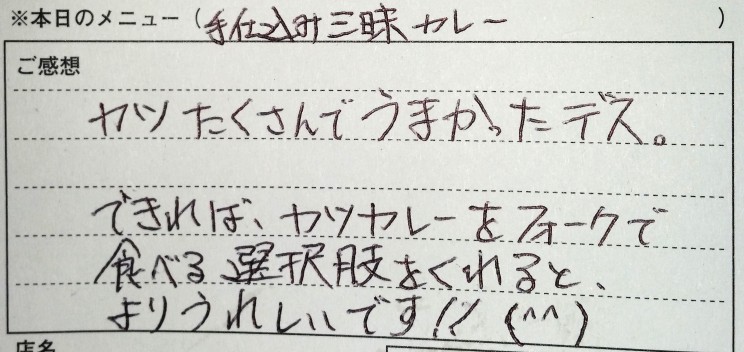 ※本日のメニュー（手仕込み三昧カレー）
ご感想
カツたくさんでうまかったデス。
できれば、カツカレーをフォークで
食べる選択肢をくれると、
よりうれしいです!! (^^)
店名